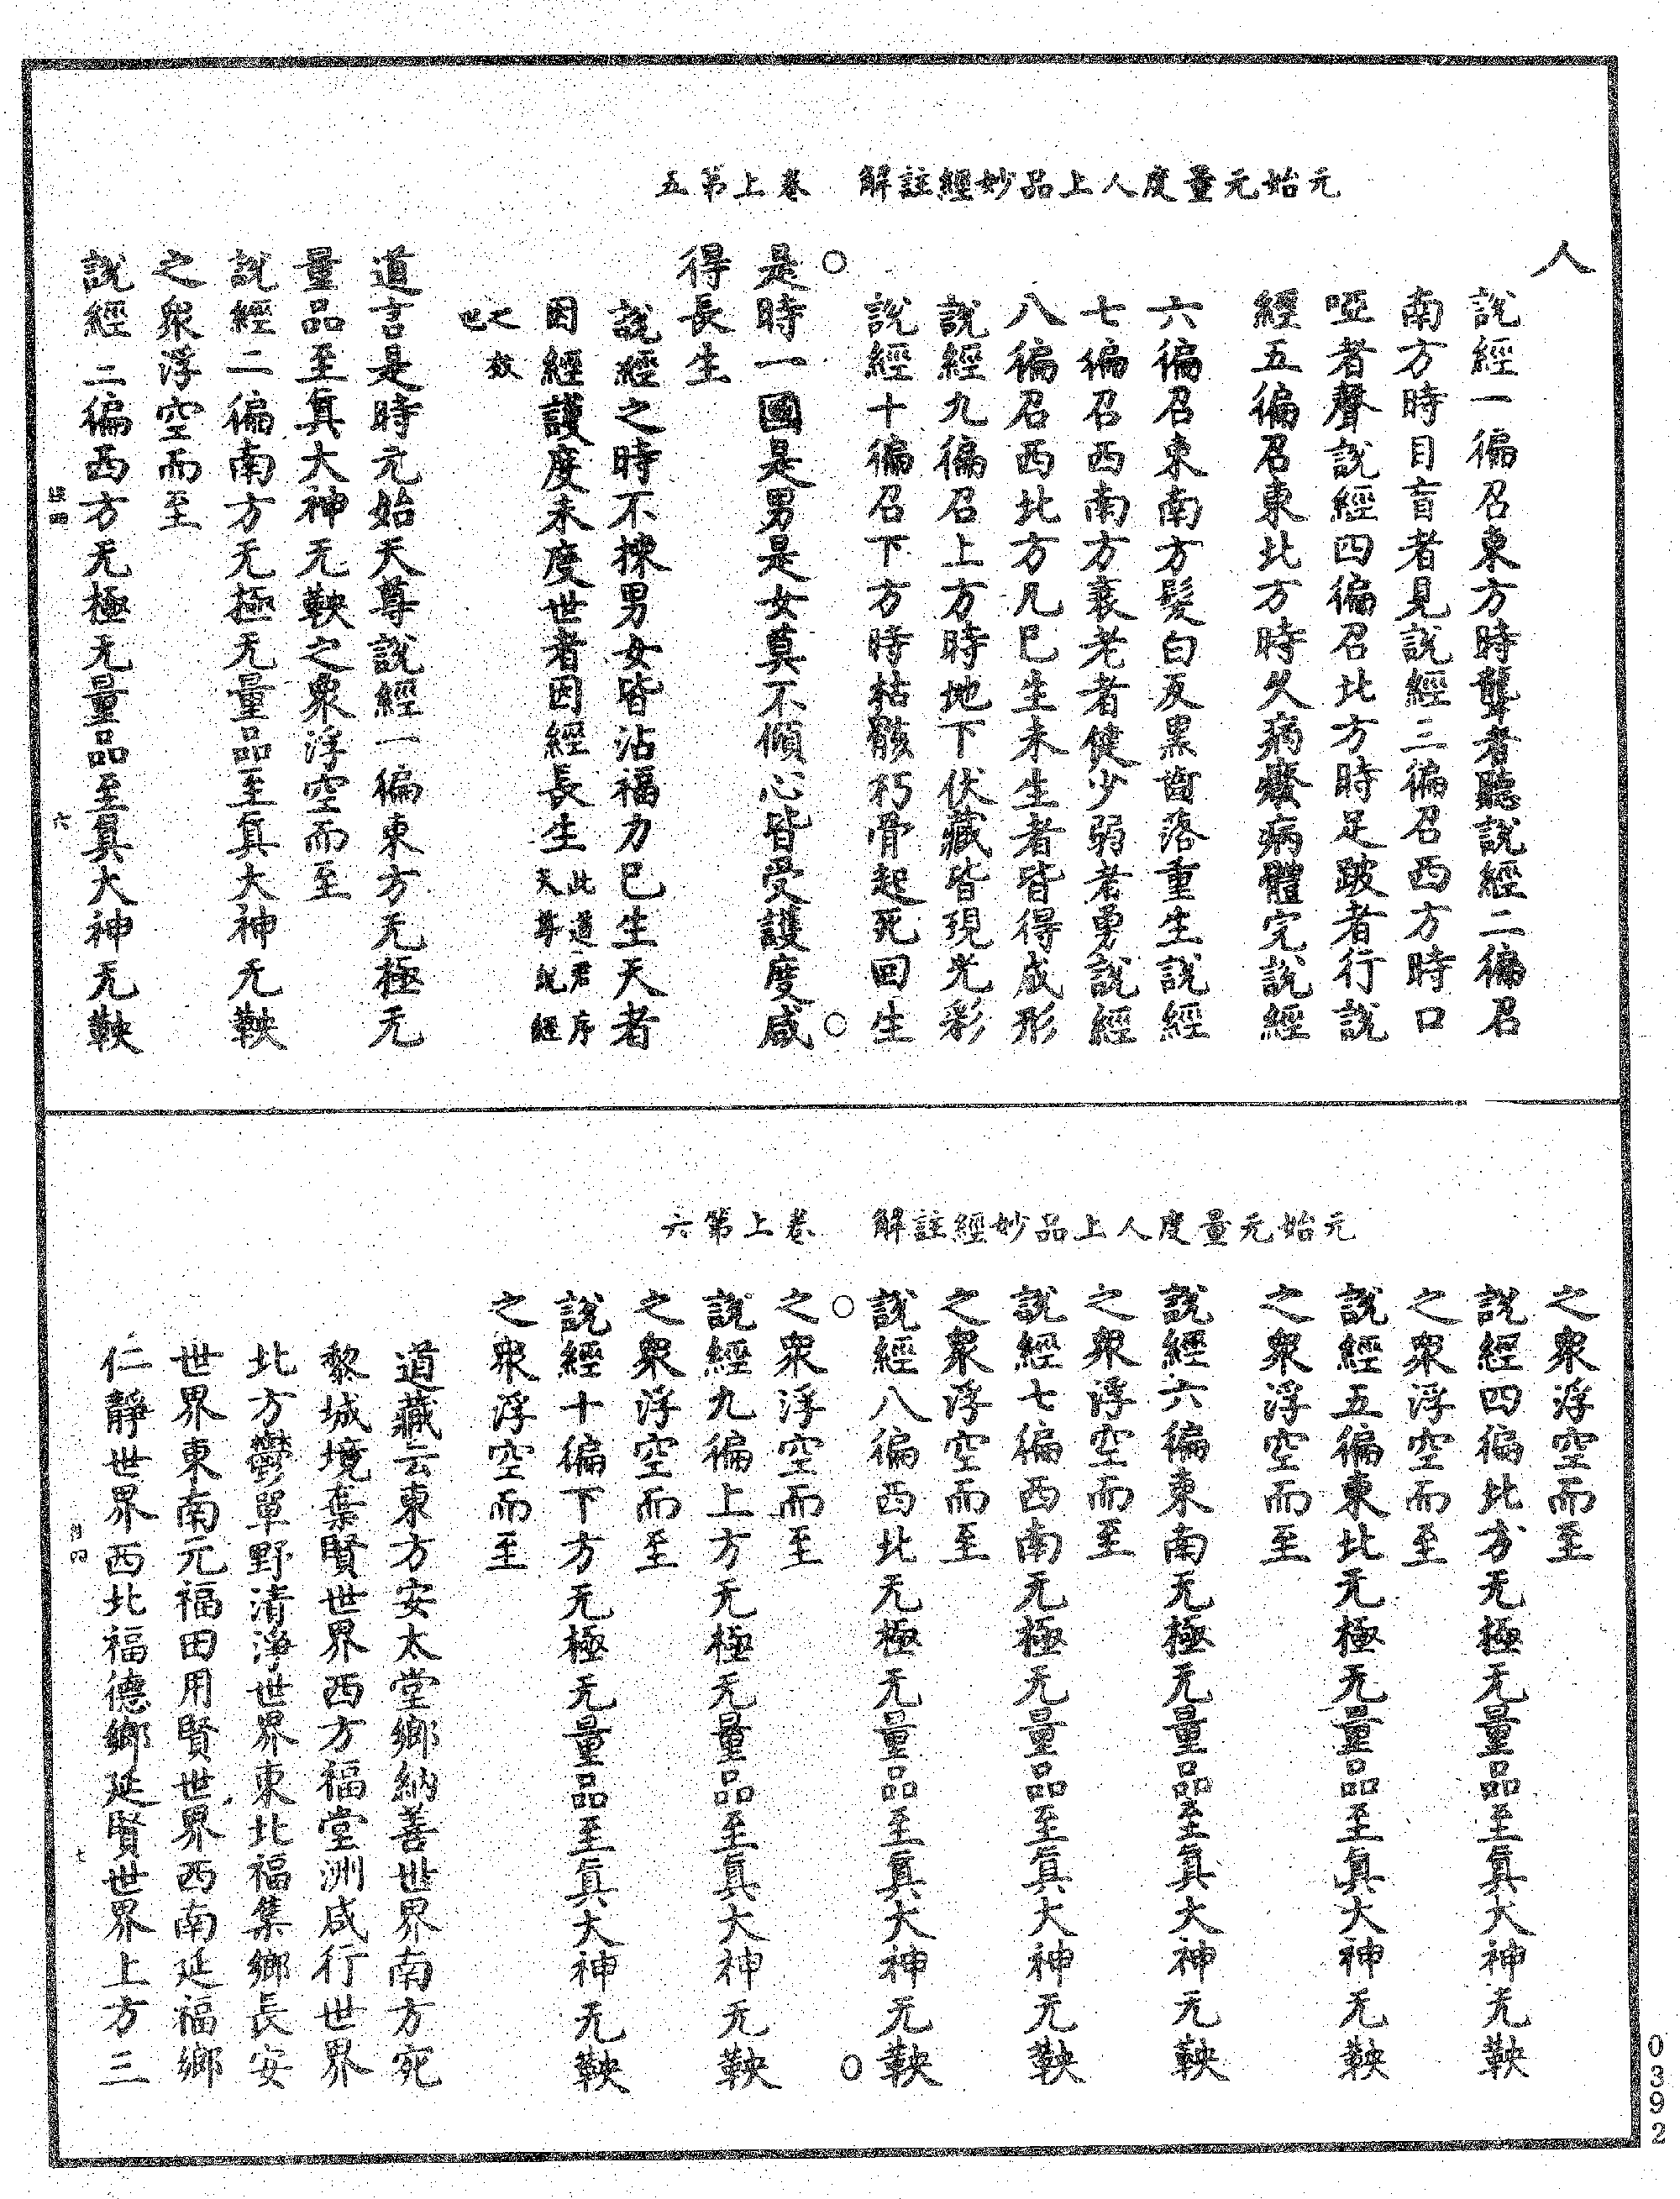 元始无量度人上品妙經註解　卷上第五
人
說經一徧召東方時聾者聽說經二徧召
南方時目盲者見說經三徧召西方時口
啞者聲說經四徧召北方時足跛者行說
經五徧召東北方時久病痊病體完說經
六徧召東南方髮白反黑齒落重生說經
七徧召西南方衰老者健少弱者勇說經
八徧召西北方凡已生未生者皆得成形
說經九徧召上方時地下伏藏皆現光彩
說經十徧召下方時枯骸朽骨起死回生
○是時一國是男是女莫不傾心皆受護度咸○
得長生
說經之時不揀男女皆沾福力已生天者
因經護度未度世者因經長生此道君序天尊說經
之效也
道言是時元始天尊說經一徧東方无極无
量品至真大神无鞅之衆浮空而至
說經二徧南方无極无量品至真大神无鞅
之衆浮空而至
說經三徧西方无極无量品至真大神无鞅
六
元始无量度人上品妙經註解　卷上第六
之衆浮空而至
說經四徧北方无極无量品至真大神无鞅
之衆浮空而至
說經五徧東北无極无量品至真大神无鞅
之衆浮空而至
說經六徧東南无極无量品至真大神无鞅
之衆浮空而至
說經七徧西南无極无量品至真大神无鞅
之衆浮空而至
說經八徧西北无極无量品至真大神无鞅
○之衆浮空而至○
說經九徧上方无極无量品至真大神无鞅
之衆浮空而至
說經十徧下方无極无量品至真大神无鞅
之衆浮空而至
道藏云東方安太堂鄉納善世界南方宛
黎城境棄賢世界西方福堂洲咸行世界
北方鬱單野清淨世界東北福集鄉長安
世界東南元福田用賢世界西南延福鄉
仁靜世界西北福德鄉延賢世界上方三
七
0392